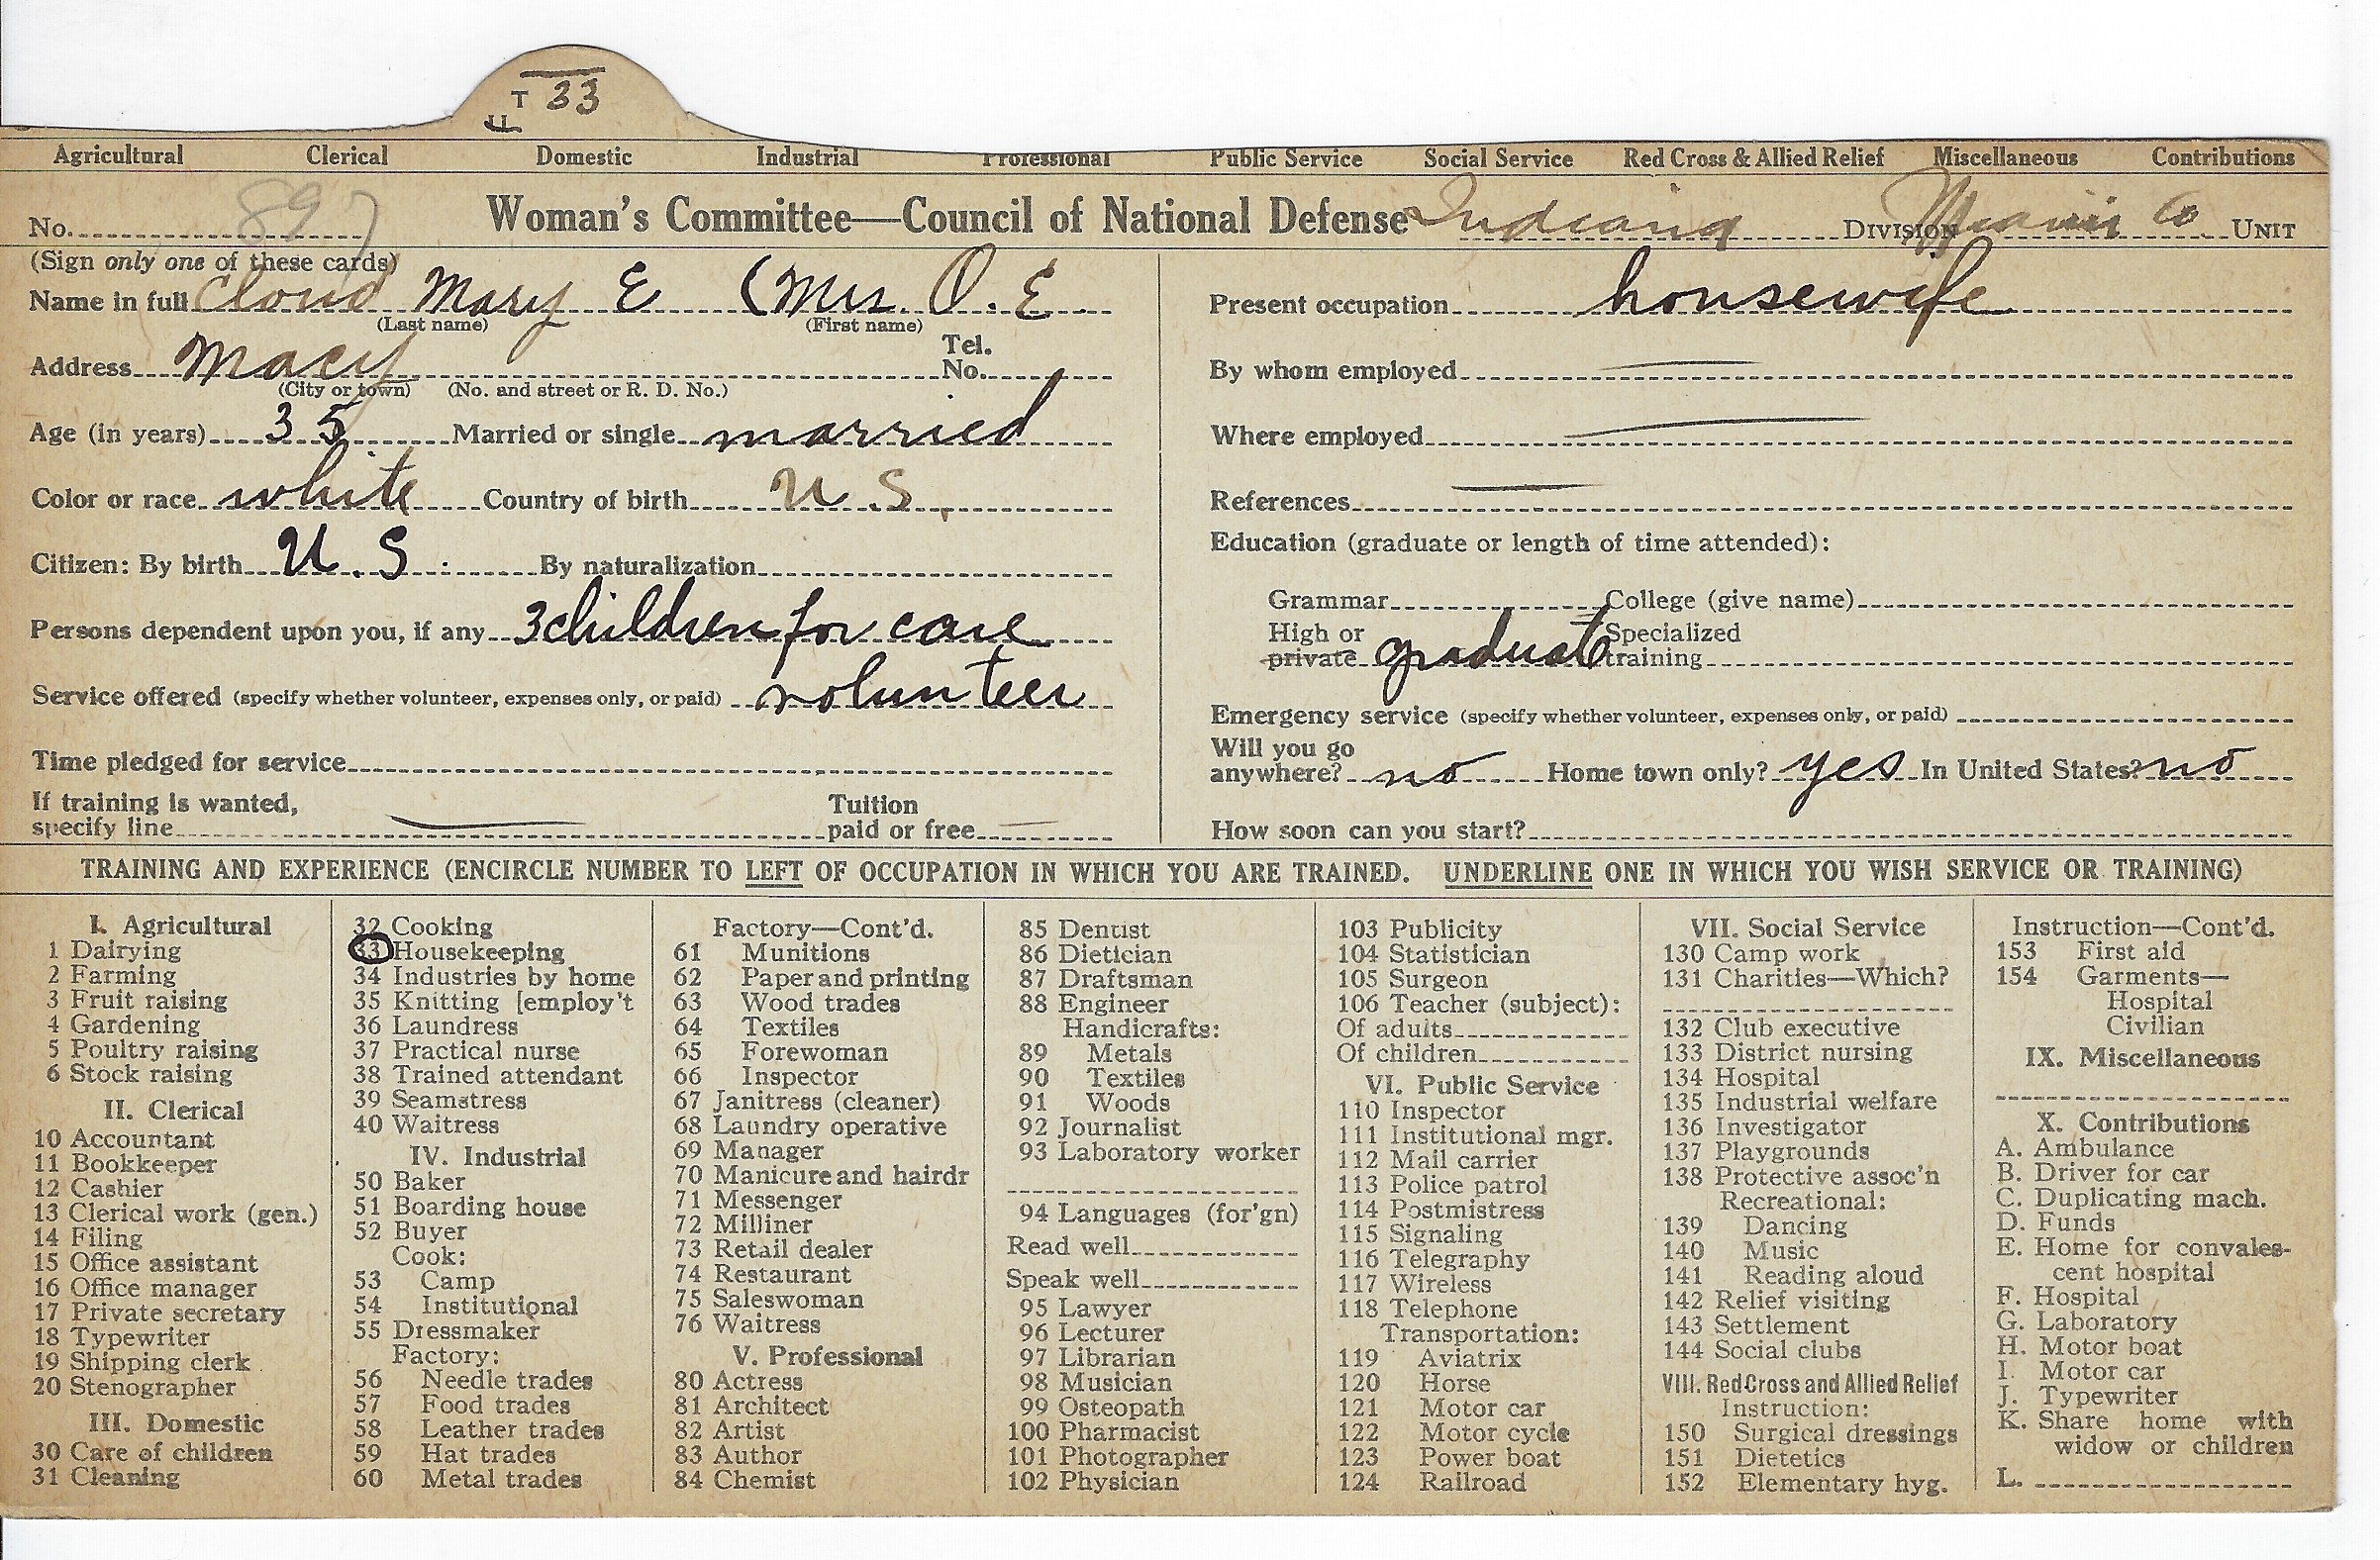 T 33
Agricultural Clerical Domestic Industrial Professional Public Service Social Service Red Cross & Allied Relief Miscellaneous Contributions
No. 897 Woman's Committee—Council of National Defense Indiana Division Miami Co Unit
(Sign only one of these cards)
Name in full Cloud Mary E (Mrs. O. E.
(Last name) (First name)
Address Macy Tel. No.
(City or town) (No. and street or R. D. No.)
Age (in years) 35 Married or single married
Color or race white Country of birth U.S.
Citizen: By birth U.S. By naturalization
Persons dependent upon you, if any 3 children for care
Service offered (specify whether volunteer, expenses only, or paid) volunteer
Time pledged for service
If training is wanted, specify line Tuition paid or free
Present occupation housewife
By whom employed
Where employed
References
Education (graduate or length of time attended):
Grammar College (give name)
High or private graduate Specialized training
Emergency service (specify whether volunteer, expenses only, or paid)
Will you go anywhere? no Home town only? yes In United States? no
How soon can you start?
TRAINING AND EXPERIENCE (ENCIRCLE NUMBER TO LEFT OF OCCUPATION IN WHICH YOU ARE TRAINED. UNDERLINE ONE IN WHICH YOU WISH SERVICE OR TRAINING)
I. Agricultural
1 Dairying
2 Farming
3 Fruit raising
4 Gardening
5 Poultry raising
6 Stock raising
II. Clerical
10 Accountant
11 Bookkeeper
12 Cashier
13 Clerical work (gen.)
14 Filing
15 Office assistant
16 Office manager
17 Private secretary
18 Typewriter
19 Shipping clerk
20 Stenographer
III. Domestic
30 Care of children
31 Cleaning
32 Cooking
33 Housekeeping
34 Industries by home
35 Knitting [employ't
36 Laundress
37 Practical nurse
38 Trained attendant
39 Seamstress
40 Waitress
IV. Industrial
50 Baker
51 Boarding house
52 Buyer
Cook:
53 Camp
54 Institutional
55 Dressmaker
Factory:
56 Needle trades
57 Food trades
58 Leather trades
59 Hat trades
60 Metal trades
Factory—Cont'd.
61 Munitions
62 Paper and printing
63 Wood trades
64 Textiles
65 Forewoman
66 Inspector
67 Janitress (cleaner)
68 Laundry operative
69 Manager
70 Manicure and hairdr
71 Messenger
72 Milliner
73 Retail dealer
74 Restaurant
75 Saleswoman
76 Waitress
V. Professional
80 Actress
81 Architect
82 Artist
83 Author
84 Chemist
85 Dentist
86 Dietician
87 Draftsman
88 Engineer
Handicrafts:
89 Metals
90 Textiles
91 Woods
92 Journalist
93 Laboratory worker
94 Languages (for'gn)
Read well
Speak well
95 Lawyer
96 Lecturer
97 Librarian
98 Musician
99 Osteopath
100 Pharmacist
101 Photographer
102 Physician
103 Publicity
104 Statistician
105 Surgeon
106 Teacher (subject):
Of adults
Of children
VI. Public Service
110 Inspector
111 Institutional mgr.
112 Mail carrier
113 Police patrol
114 Postmistress
115 Signaling
116 Telegraphy
117 Wireless
118 Telephone
Transportation:
119 Aviatrix
120 Horse
121 Motor car
122 Motor cycle
123 Power boat
124 Railroad
VII. Social Service
130 Camp work
131 Charities—Which?
132 Club executive
133 District nursing
134 Hospital
135 Industrial welfare
136 Investigator
137 Playgrounds
138 Protective assoc'n
Recreational:
139 Dancing
140 Music
141 Reading aloud
142 Relief visiting
143 Settlement
144 Social clubs
VIII. Red Cross and Allied Relief
Instruction:
150 Surgical dressings
151 Dietetics
152 Elementary hyg.
Instruction—Cont'd.
153 First aid
154 Garments—
Hospital
Civilian
IX. Miscellaneous
X. Contributions
A. Ambulance
B. Driver for car
C. Duplicating mach.
D. Funds
E. Home for convales-
cent hospital
F. Hospital
G. Laboratory
H. Motor boat
I. Motor car
J. Typewriter
K. Share home with
widow or children
L.